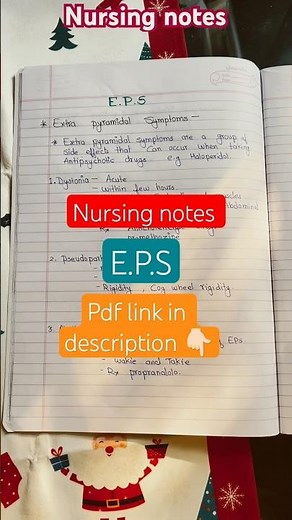 Nursing notes
E.P.S
* Extra pyramidal Symptoms -
* Extra pyramidal symptoms are a group of
side effects that can occur when taking
Antipsychotic drugs e.g Haloperidol.
1. Dystonia - Acute
within few hours
Nursing notes
promethazine
E.P.S
2.
- Rigidity, Cog wheel rigidity
Pdf link in
description 👇🏻
3.
EPS
- Wakie and Takie
- Rx propranolol.